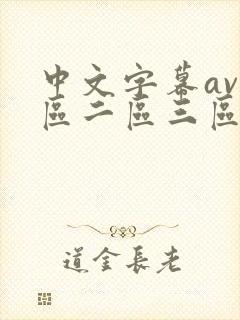 中文字幕av
區二區三區
道金長老